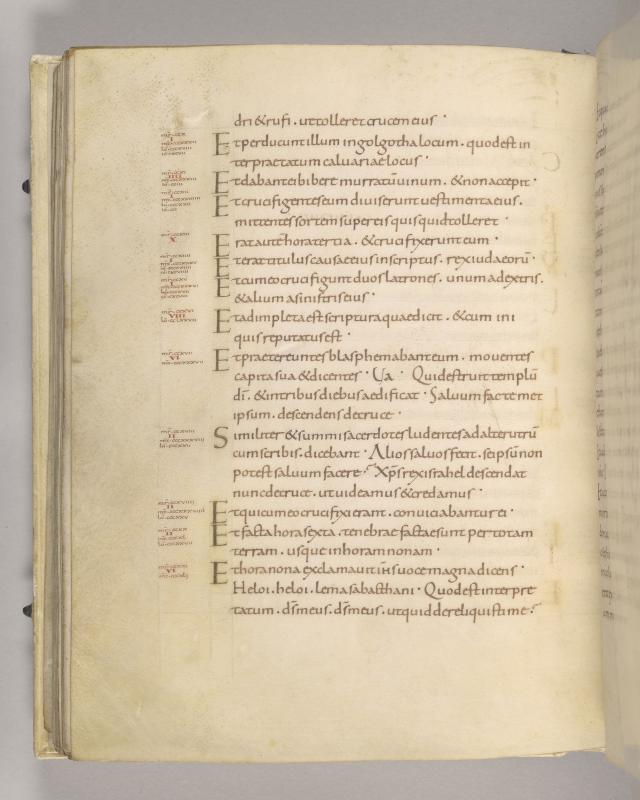 dri &rufi . uttolleret crucem eius ·
Et perducunt illum in golgotha locum . quod est in
terpraetatum caluariae locus ·
Et dabant ei bibere murratū uinum . &non accepit ·
Et crucifigentes eum diuiserunt uestimenta eius .
mittentes sortem super eis quis quid tolleret ·
Erat autē hora tertia . &crucifixerunt eum ·
Et erat titulus causae eius inscriptus . rex iudaeorū ·
Et cum eo crucifigunt duos latrones . unum adextris .
&alium asinistris eius ·
Et adimpleta est scriptura quae dicit . &cum ini
quis reputatus est ·
Et praetereuntes blasphemabant eum . mouentes
capita sua &dicentes · Ua · Qui destruit templū
dī . &intribus diebus aedificat · Saluum fac temet
ipsum . descendens decruce ·
Similiter &summi sacerdotes ludentes adalterutrū
cum scribis . dicebant · Alios saluos fecit . seipsū non
potest saluum facere · Xp̄s rex israhel descendat
nunc decruce . ut uideamus &credamus ·
Et qui cum eo crucifixi erant . conuiciabantur ei ·
Et facta hora sexta . tenebrae factae sunt per totam
terram . usque inhoram nonam ·
Et hora nona exclamauit ih̄s uoce magna dicens ·
Heloi . heloi . lema sabacthani · Quod est interpre
tatum . d̄s meus . d̄s meus . utquid dereliquisti me ·